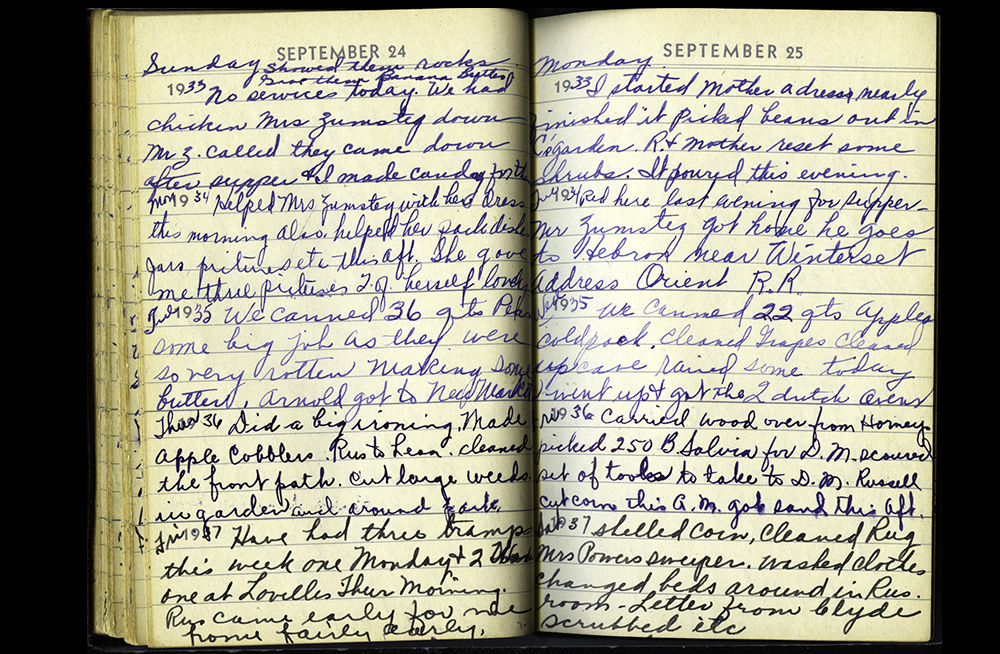 SEPTEMBER 24
Sunday showed them rocks
Gave them Banana Butter
1933 No services today. We had
chicken Mrs Zumsteg down
Mr Z. called they came down
after supper & I made candy for the
Mon 1934 helped Mrs Zumsteg with her dress
this morning also helped her pack dishes
Jars pictures etc this aft. She gave
me three pictures 2 of herself lovely
Tu 1935 We canned 36 qts
some big job as they were
so very rotten making some
butter, Arnold got to New Market
Thurs 36 Did a big ironing. Made
Apple Cobblers. Rus to Leon. cleaned
the front path. cut large weeds
in garden and around
Fri 1937 Have had three tramps
this week one Monday & 2
one at Lovelles Thur Morning.
Rus came early for me
home fairly early.
SEPTEMBER 25
Monday.
1933 I started Mother a dress, nearly
finished it Picked beans out in
garden. R. & Mother reset some
shrubs. It poured this evening.
1934 Red here last evening for supper-
Mr Zumsteg got home he goes
to Hebron near Winterset
address Orient R.R.
Wed 1935 We canned 22 qts Apples
coldpack. cleaned Grapes cleaned
up cave rained some today
I went up & got the 2 dutch ovens
Fri 1936 Carried wood over from Horneys
picked 250 B Salvia for D. M. scoured
set of tools to take to D. M. Russell
cut corn this A. M. got sand this aft.
Sat 1937 shelled corn, cleaned Rug
Mrs Powers sweeper. washed clothes
changed beds around in Rus.
room - Letter from Clyde
scrubbed etc